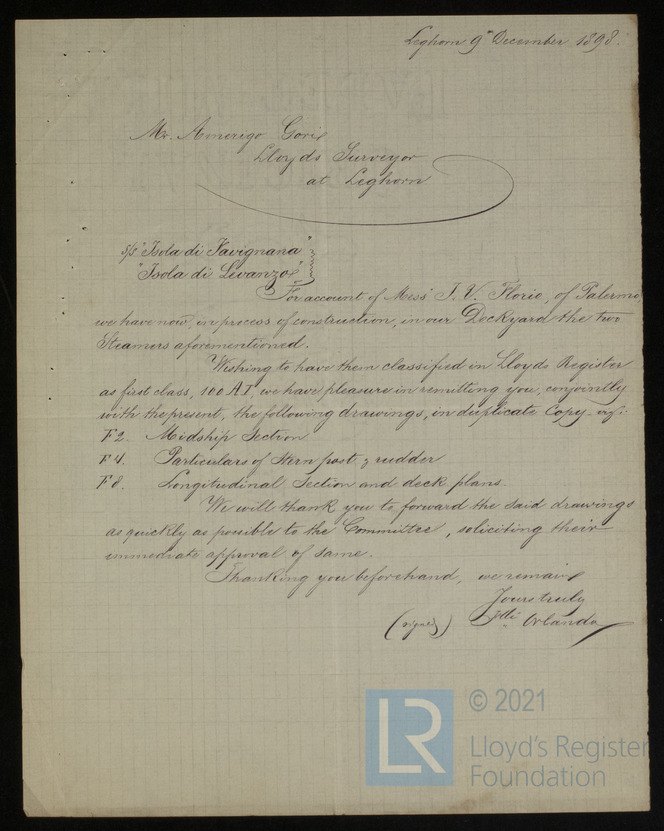 Leghorn 9th December 1898.
Mr. Amerigo Gori
Lloyds Surveyor
at Leghorn
S/S "Isola di Favignana"
"Isola di Levanzo"
For account of Messrs I. V. Florio, of Palermo
we have now, in process of construction, in our Dockyard the two
Steamers aforementioned.
Wishing to have them classified in Lloyds Register
as first class, 100 A I, we have pleasure in remitting you, conjointly
with the present, the following drawings, in duplicate Copy. viz:
F 2. Midship Section
F 4. Particulars of Stern post & rudder
F 8. Longitudinal Section and deck plans.
We will thank you to forward the said drawings
as quickly as possible to the Committee, soliciting their
immediate approval of same.
Thanking you beforehand, we remain
Yours truly
(signed) Flli Orlando
LR
© 2021
Lloyd's Register
Foundation